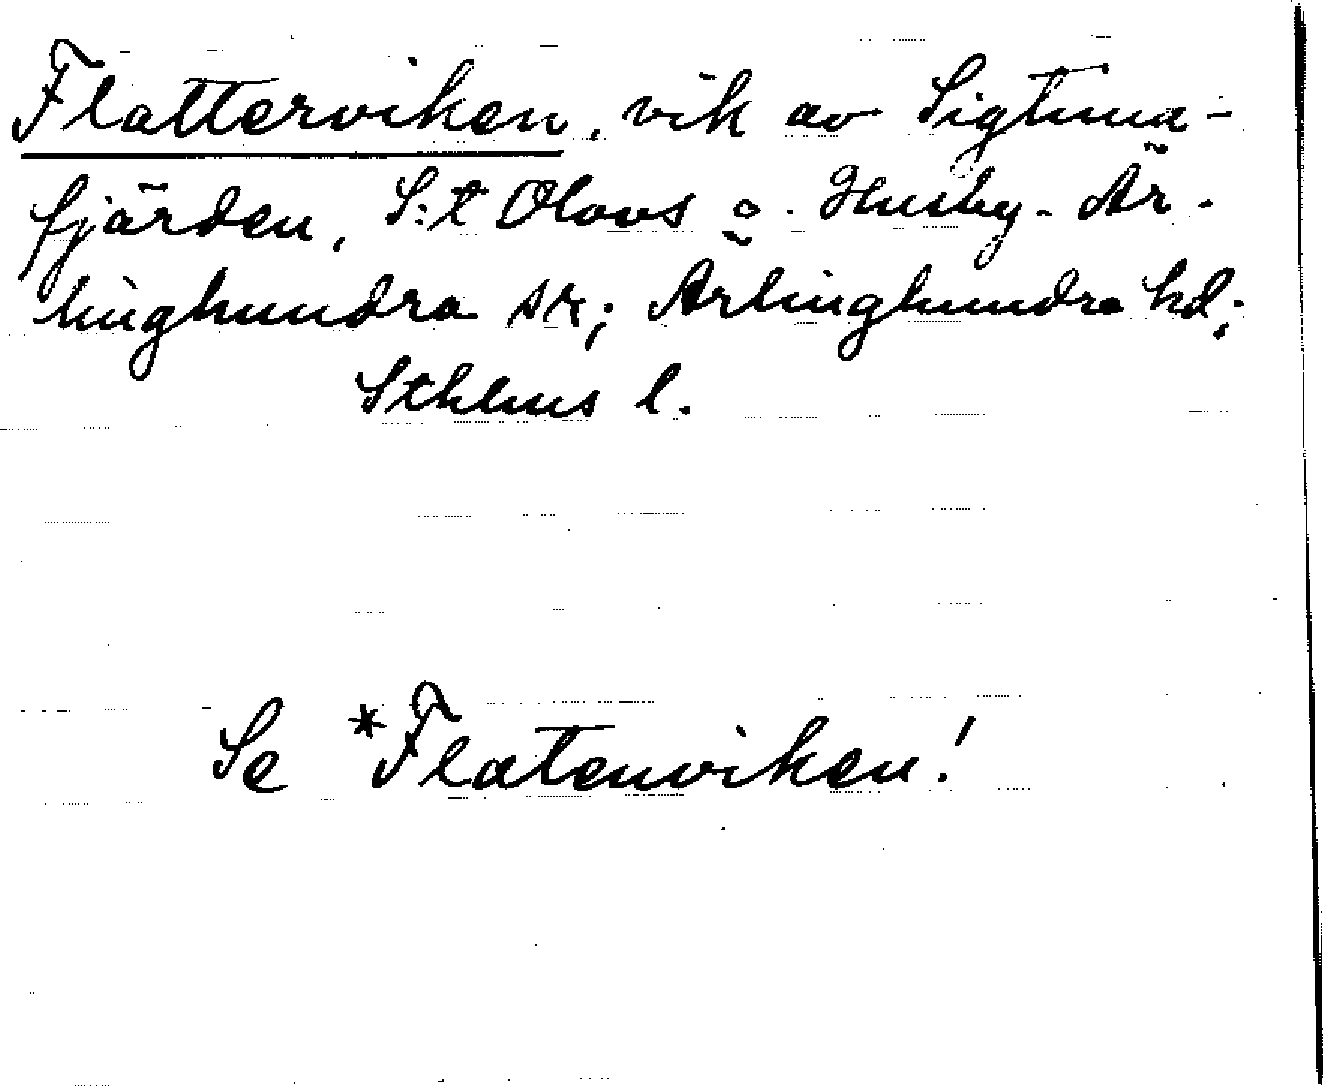 Flatterviken, vik av Sigtuna-
fjärden, S:t Olovs o. Husby-Är-
linghundra sk; Ärlinghundra hd;
Sthlms l.
Se *Flatenviken!